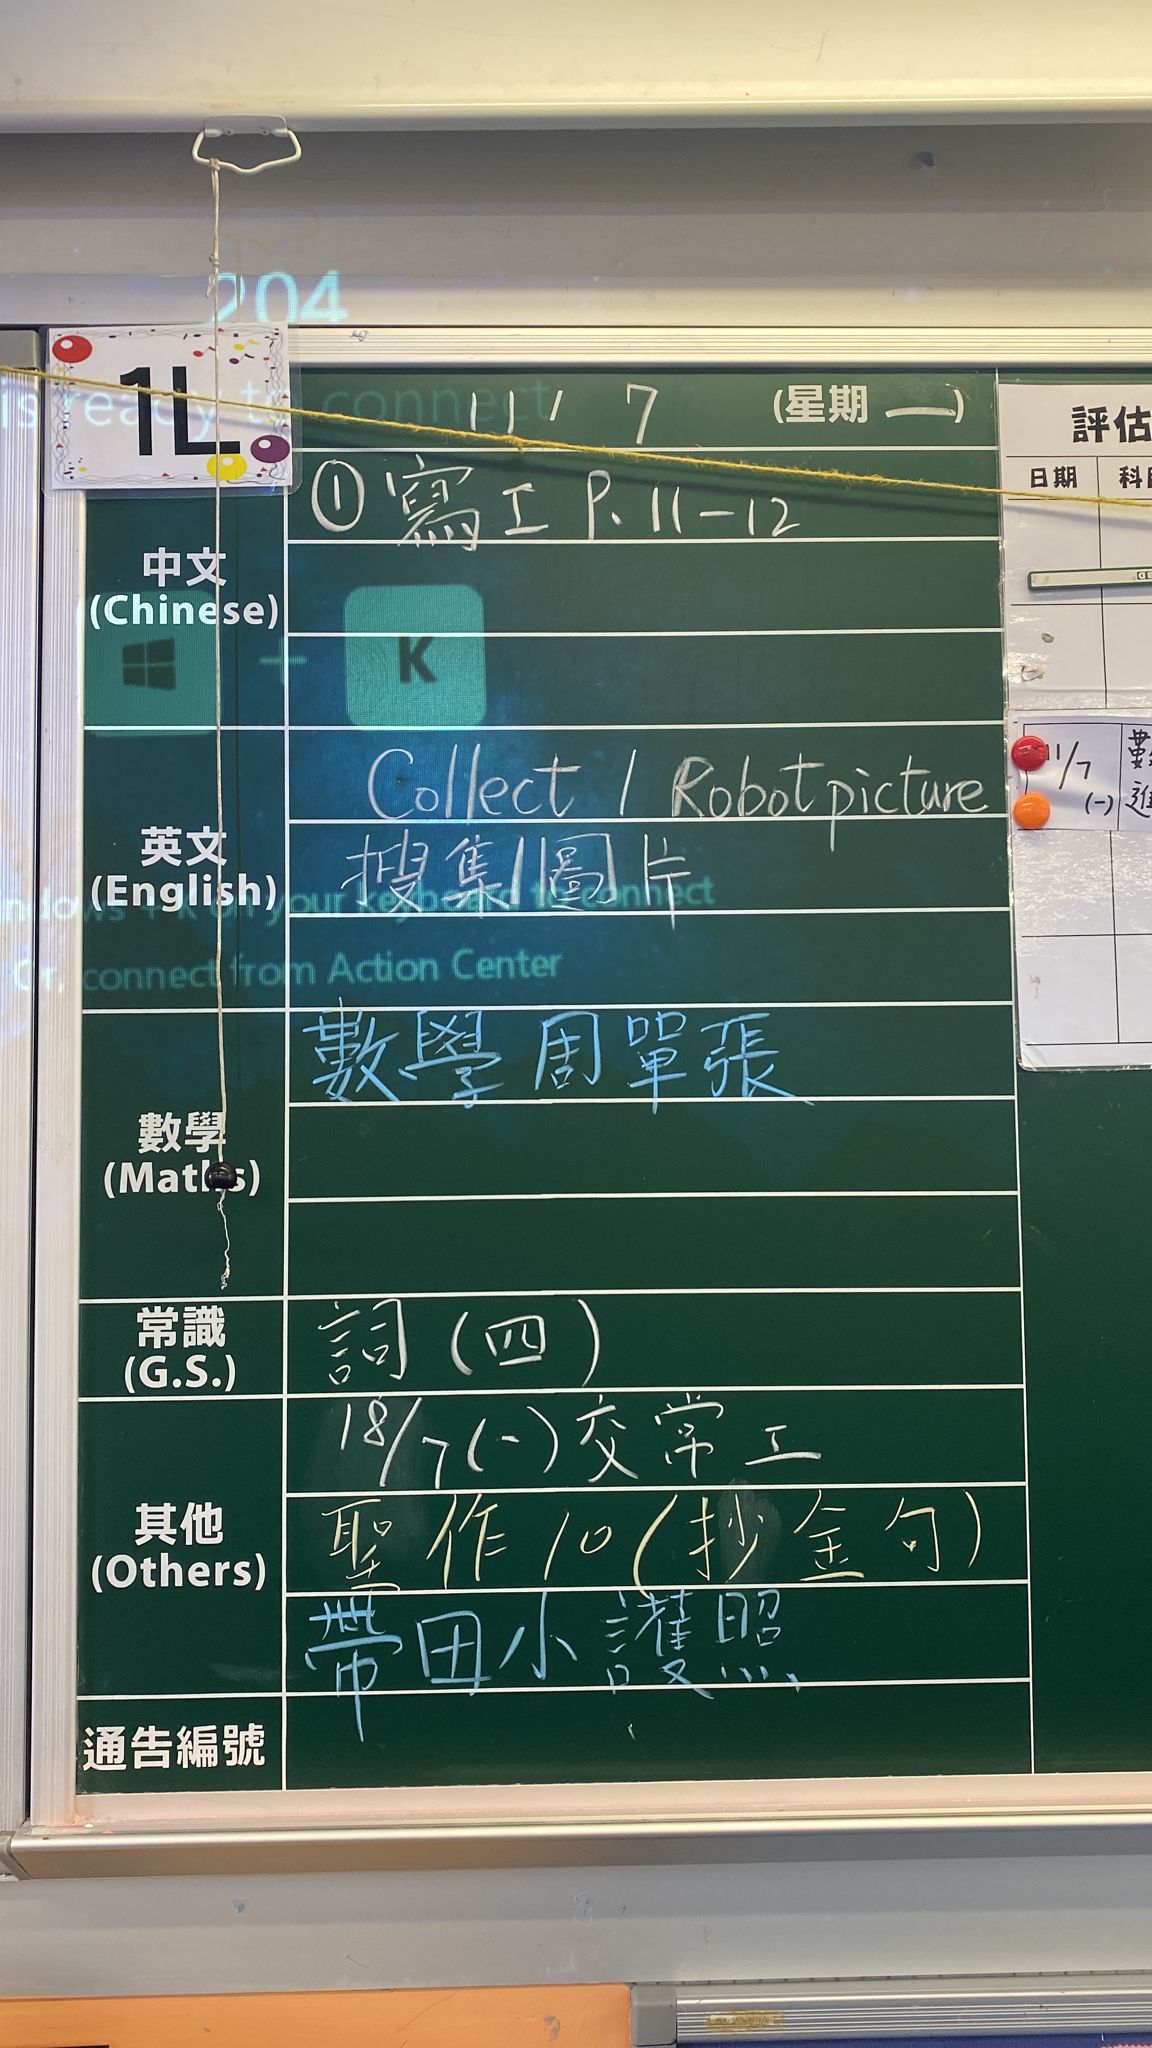 204
is ready to connect
1L
11/7 (星期一)
評估
日期
中文
(Chinese)
① 寫工 P. 11-12
+ K
英文
(English)
Collect 1 Robot picture
搜集1圖片
11/7
(一)
on your keyboard to connect
Or, connect from Action Center
數學
(Maths)
數學周單張
常識
(G.S.)
詞(四)
其他
(Others)
18/7(一)交常工
聖作10(抄金句)
帶田小護照
通告編號